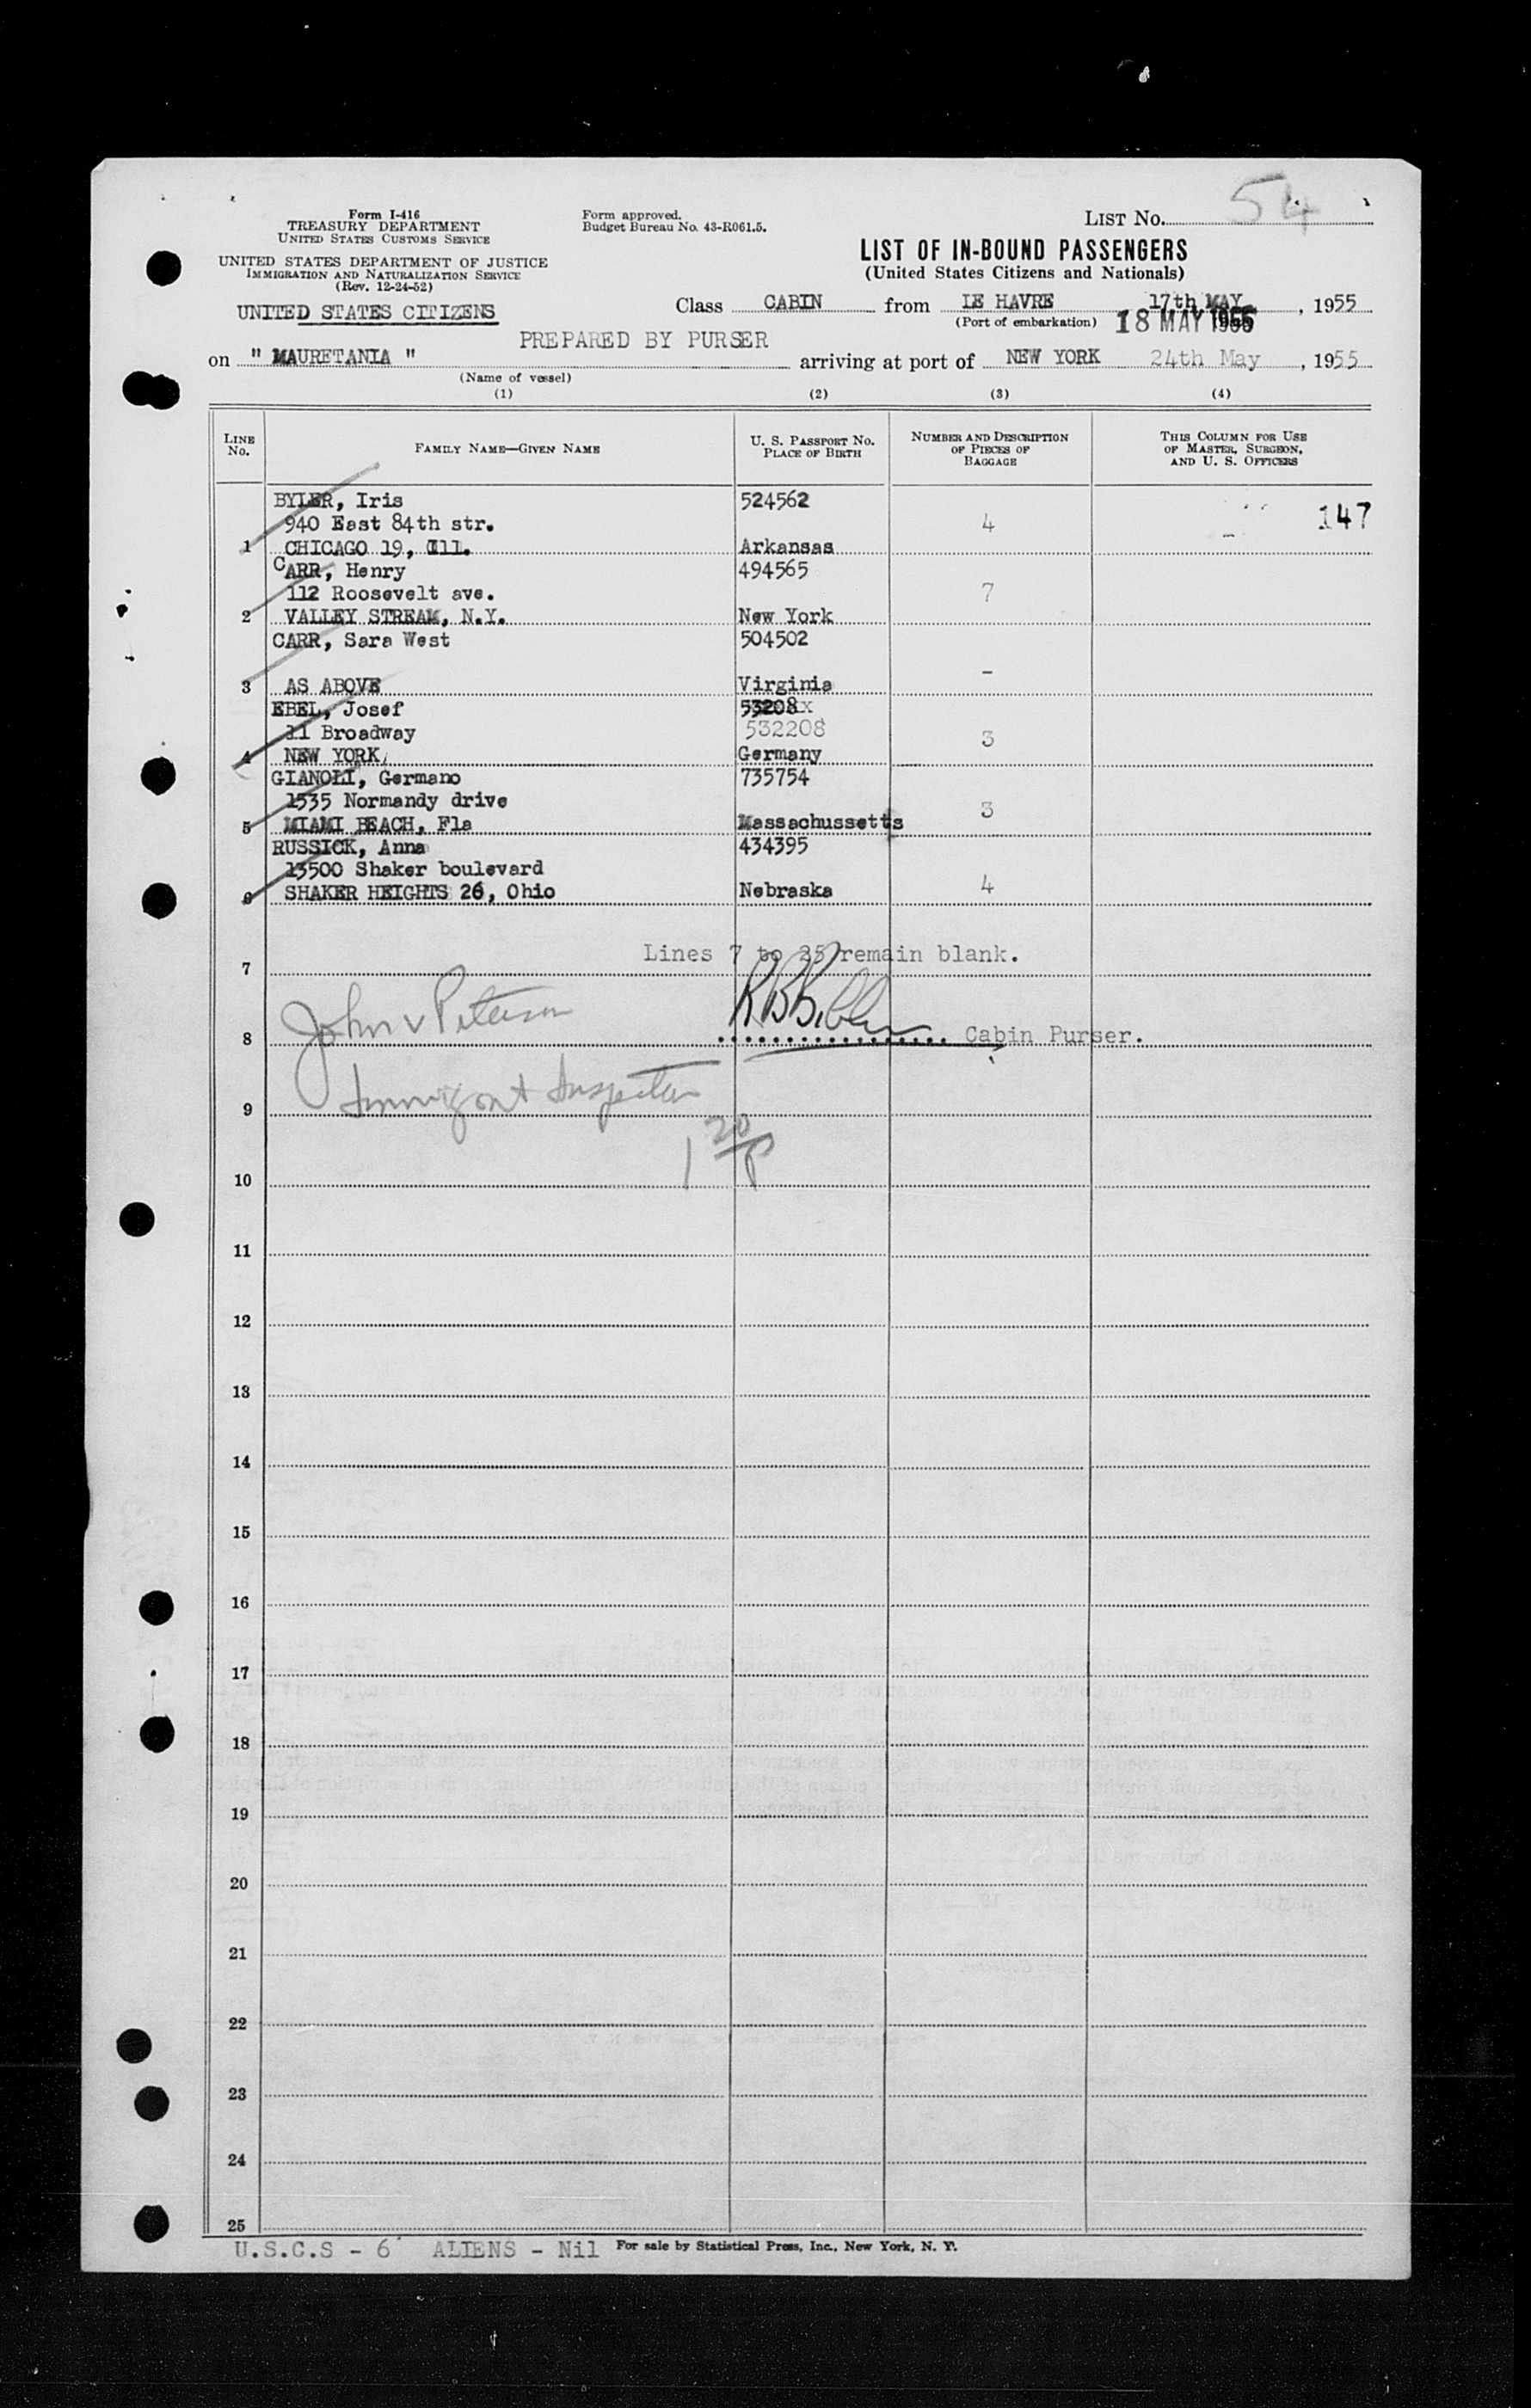 LIST No. 54
Form I-416
TREASURY DEPARTMENT
UNITED STATES CUSTOMS SERVICE
Form approved.
Budget Bureau No. 43-R061.5.
LIST OF IN-BOUND PASSENGERS
(United States Citizens and Nationals)
UNITED STATES DEPARTMENT OF JUSTICE
IMMIGRATION AND NATURALIZATION SERVICE
(Rev. 12-24-52)
UNITED STATES CITIZENS
Class CABIN from LE HAVRE 17th MAY, 1955
(Port of embarkation)
18 MAY 1955
PREPARED BY PURSER
on " MAURETANIA " arriving at port of NEW YORK 24th May, 1955
(Name of vessel)
(1) (2) (3) (4)
LINE No. FAMILY NAME—GIVEN NAME U. S. PASSPORT No. PLACE OF BIRTH NUMBER AND DESCRIPTION OF PIECES OF BAGGAGE THIS COLUMN FOR USE OF MASTER, SURGEON, AND U. S. OFFICERS
BYLER, Iris 524562
940 East 84th str. 4 147
1 CHICAGO 19, Ill. Arkansas
CARR, Henry 494565
112 Roosevelt ave. 7
2 VALLEY STREAM, N.Y. New York
CARR, Sara West 504502
-
3 AS ABOVE Virginia
EBEL, Josef 53208x
11 Broadway 532208 3
4 NEW YORK Germany
GIANOLI, Germano 735754
1535 Normandy drive 3
5 MIAMI BEACH, Fla Massachussetts
RUSSICK, Anna 434395
13500 Shaker boulevard 4
6 SHAKER HEIGHTS 26, Ohio Nebraska
Lines 7 to 25 remain blank.
7
John V Peterson
8 Cabin Purser.
Immigrant Inspector
9
1 20/P
10
11
12
13
14
15
16
17
18
19
20
21
22
23
24
25
U.S.C.S - 6 ALIENS - Nil For sale by Statistical Press, Inc., New York, N. Y.